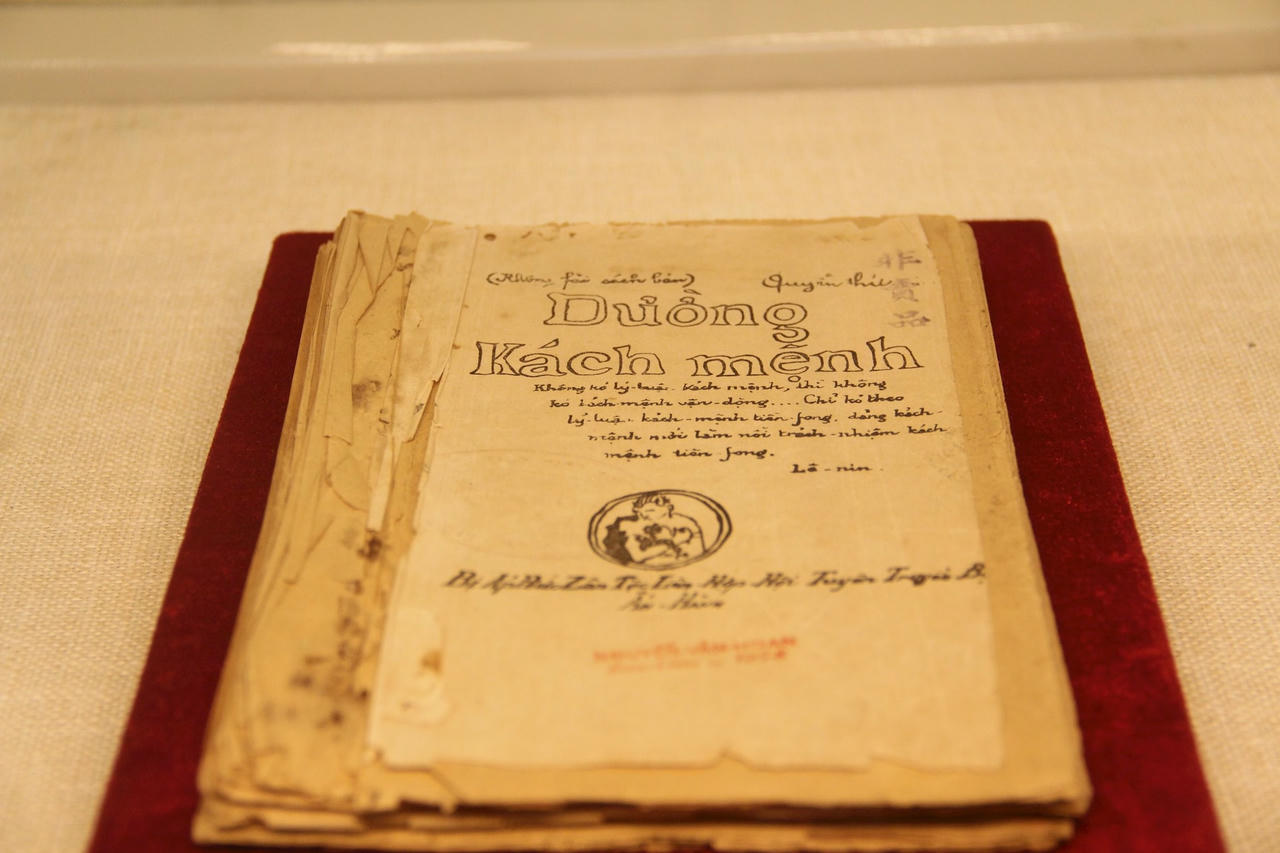 (Không fải sách bán) Quyển thứ
非
賣
品
Đường
Kách mệnh
Không kó lý-luận kách mệnh, thì không
kó kách mệnh vận-động.... Chỉ kó theo
lý-luận kách-mệnh tiền-fong, đảng kách-
mệnh mới làm nổi trách-nhiệm kách
mệnh tiền-fong.
Lê-nin.
Bị Áp Bức Dân Tộc Liên Hợp Hội Tuyên Truyền Bộ